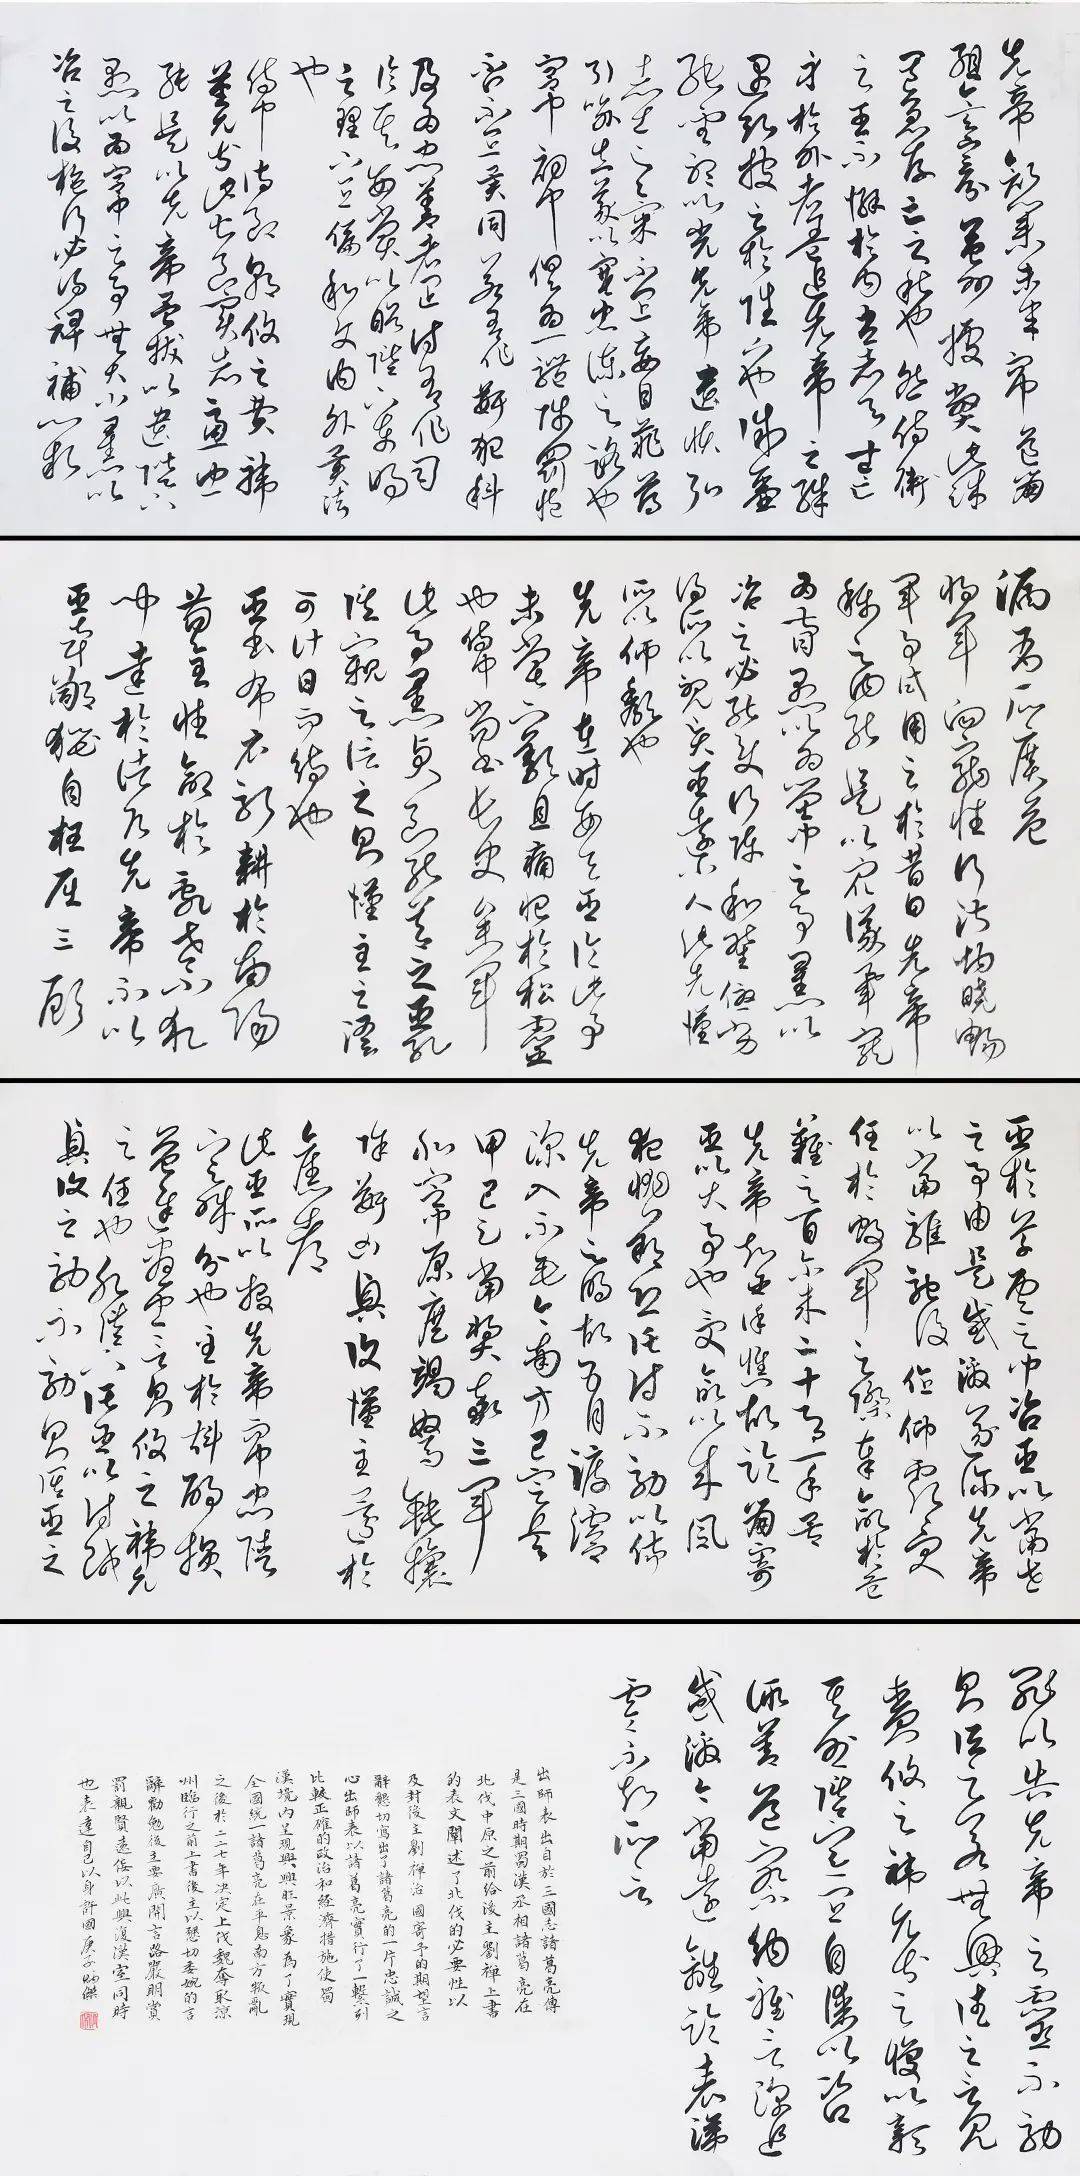 先帝創業未半而中道崩
殂今天下三分益州疲弊此誠
危急存亡之秋也然侍衛
之臣不懈於內忠志之士亡
身於外者蓋追先帝之殊
遇欲報之於陛下也誠宜
開張聖聽以光先帝遺德弘
志士之氣不宜妄自菲薄
引喻失義以塞忠諫之路也
宮中府中俱為一體陟罰臧
否不宜異同若有作奸犯科
及為忠善者宜付有司
論其刑賞以昭陛下平明
之理不宜偏私使內外異法
也
侍中侍郎郭攸之費禕
董允等此皆良實志慮忠
純是以先帝簡拔以遺陛下
愚以為宮中之事無大小悉以
咨之然後施行必得裨補闕
漏有所廣益
將軍向寵性行淑均曉暢
軍事試用之於昔日先帝
稱之曰能是以眾議舉寵
為督愚以為營中之事悉以
咨之必能使行陣和睦優劣
得所以親賢臣遠小人此先漢
所以傾頹也
先帝在時每與臣論此事
未嘗不歎息痛恨於桓靈
也侍中尚書長史參軍
此悉貞良死節之臣願
陛下親之信之則漢室之隆
可計日而待也
臣本布衣躬耕於南陽
苟全性命於亂世不求
聞達於諸侯先帝不以
臣卑鄙猥自枉屈三顧
臣於草廬之中咨臣以當世
之事由是感激遂許先帝
以驅馳後值傾覆受
任於敗軍之際奉命於危
難之間爾來二十有一年矣
先帝知臣謹慎故臨崩寄
臣以大事也受命以來夙
夜憂歎恐託付不效以傷
先帝之明故五月渡瀘
深入不毛今南方已定兵
甲已足當獎率三軍
北定中原庶竭駑鈍攘
除奸凶興復漢室還於
舊都
此臣所以報先帝而忠陛
下之職分也至於斟酌損
益進盡忠言則攸之禕允
之任也願陛下託臣以討賊
興復之效不效則治臣之
罪以告先帝之靈不效
則治臣若無興德之言則
責攸之禕允等之慢以彰
其咎陛下亦宜自謀以咨
諏善道察納雅言深追
感激今當遠離臨表涕
零不知所言
出師表出自於三國志諸葛亮傳
是三國時期蜀漢丞相諸葛亮在
北伐中原之前給後主劉禪上書
的表文闡述了北伐的必要性以
及封後主劉禪治國寄予的期望言
辭懇切寫出了諸葛亮的一片忠誠之
心出師表以諸葛亮實行了一繫列
比較正確的政治和經濟措施使蜀
漢境內呈現興興旺景象為了實現
全國統一諸葛亮在平息南方叛亂
之後於二二七年決定上伐魏奪取涼
州臨行之前上書後主以懇切委婉的言
辭勸勉後主要廣開言路嚴明賞
罰親賢遠佞以此興復漢室同時
也表達自己以身許國庚子炳傑